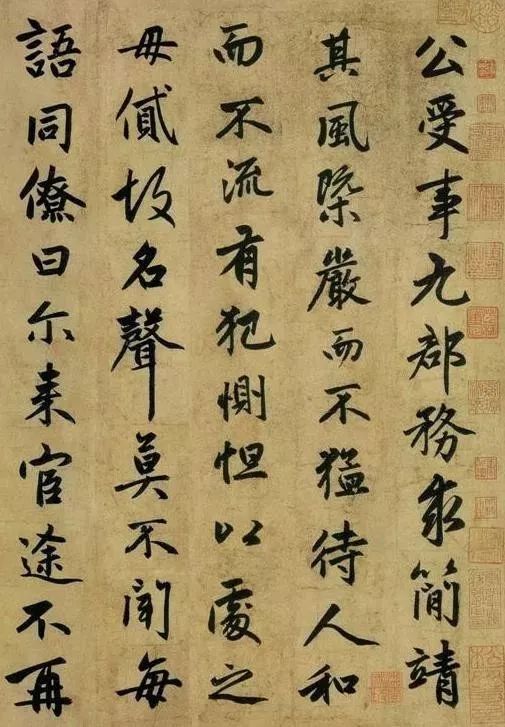 公受事九郡務求簡靖
其風槩嚴而不猛待人和
而不流有犯惻怛以處之
毋貳故名聲莫不聞每
語同僚曰尓来宦途不再